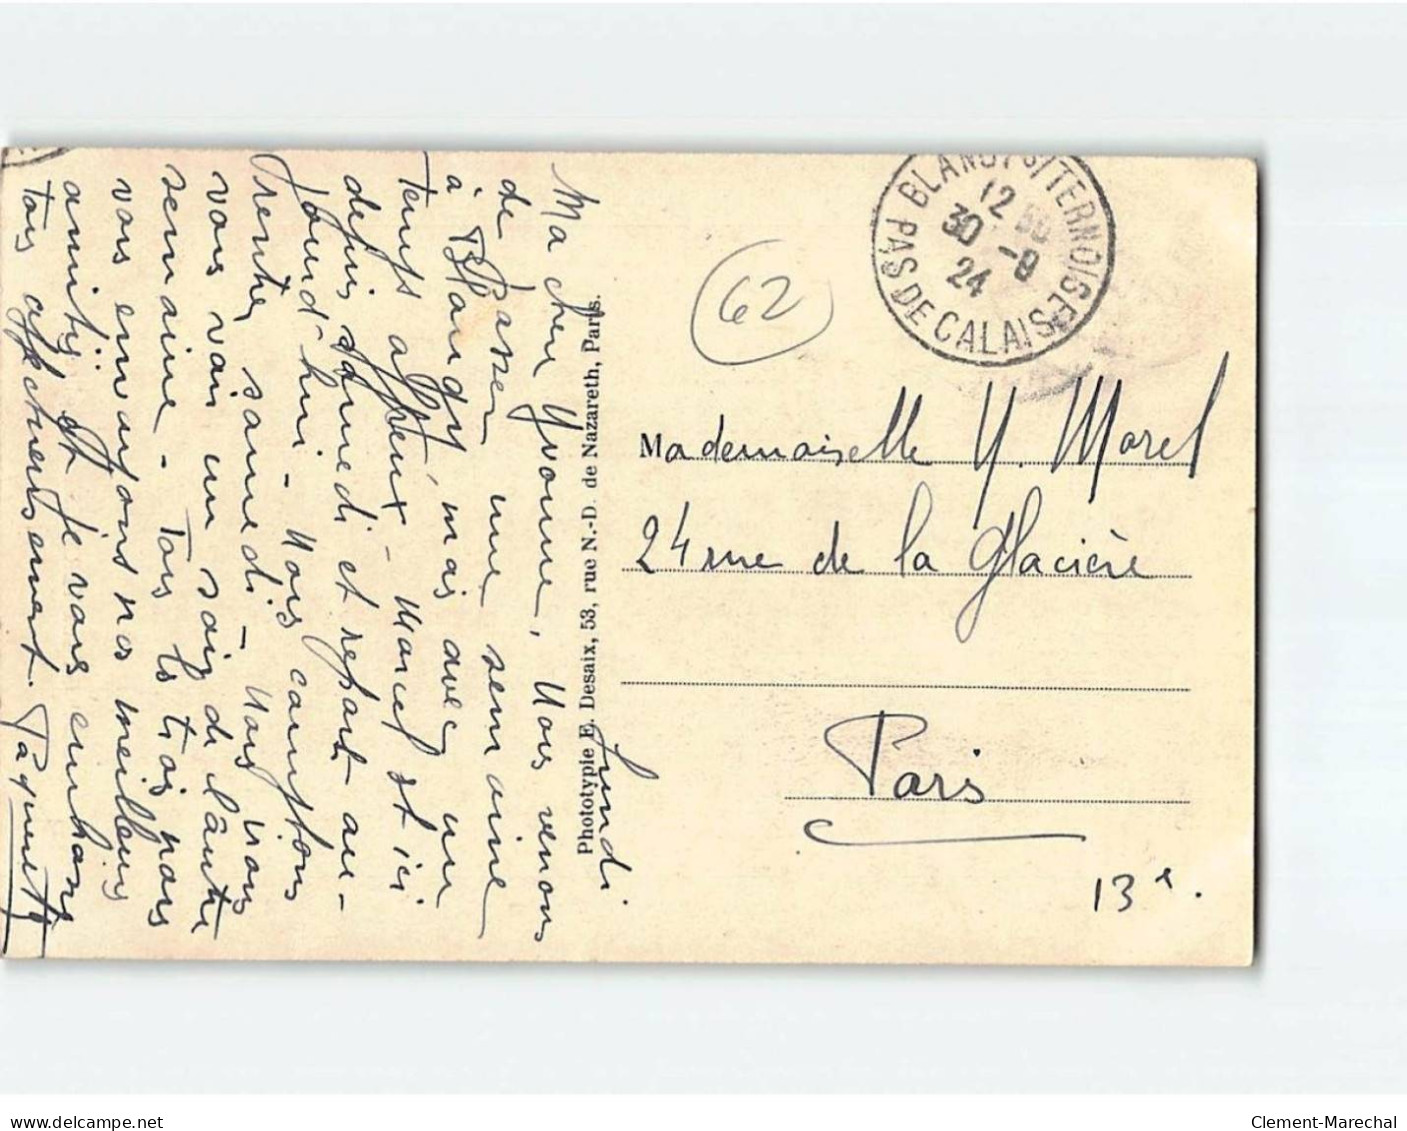 Lundi
Ma chère Yvonne, Nous venons
de passer une semaine
à Blangy, mais avec un
temps affreux - Marcel est ici
depuis samedi et repart au-
jourd'hui - Nous comptons
rentrer samedi - Nous irons
vous voir un soir de l'autre
semaine - Tous les trois nous
vous envoyons nos meilleures
amitiés et je vous embrasse
tous affectueusement.
Paquerette
Phototypie E. Desaix, 53, rue N.-D. de Nazareth, Paris.
62
BLANGY S/TERNOISE
12
30 -9
24
PAS DE CALAIS
Mademoiselle Y. Morel
24 rue de la Glacière
Paris
13e.
www.delcampe.net
Clement-Marechal